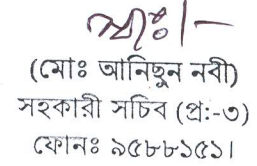 স্বাঃ/-
(মোঃ আনিছুন নবী)
সহকারী সচিব (প্র:-৩)
ফোনঃ ৯৫৮৮১৫১।